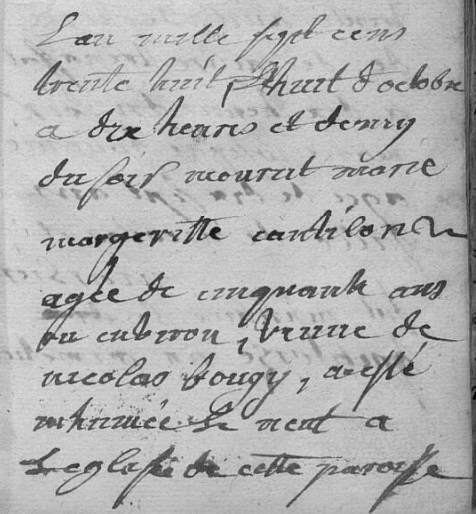 L'an mille sept cens
trente huit, le huit d'octobre
a dix heures et demy
du soir mourut marie
margeritte cantilon
agée de cinquante ans
ou environ, veuve de
nicolas bougy, a esté
inhumée le neuf a
l'eglise de cette paroisse